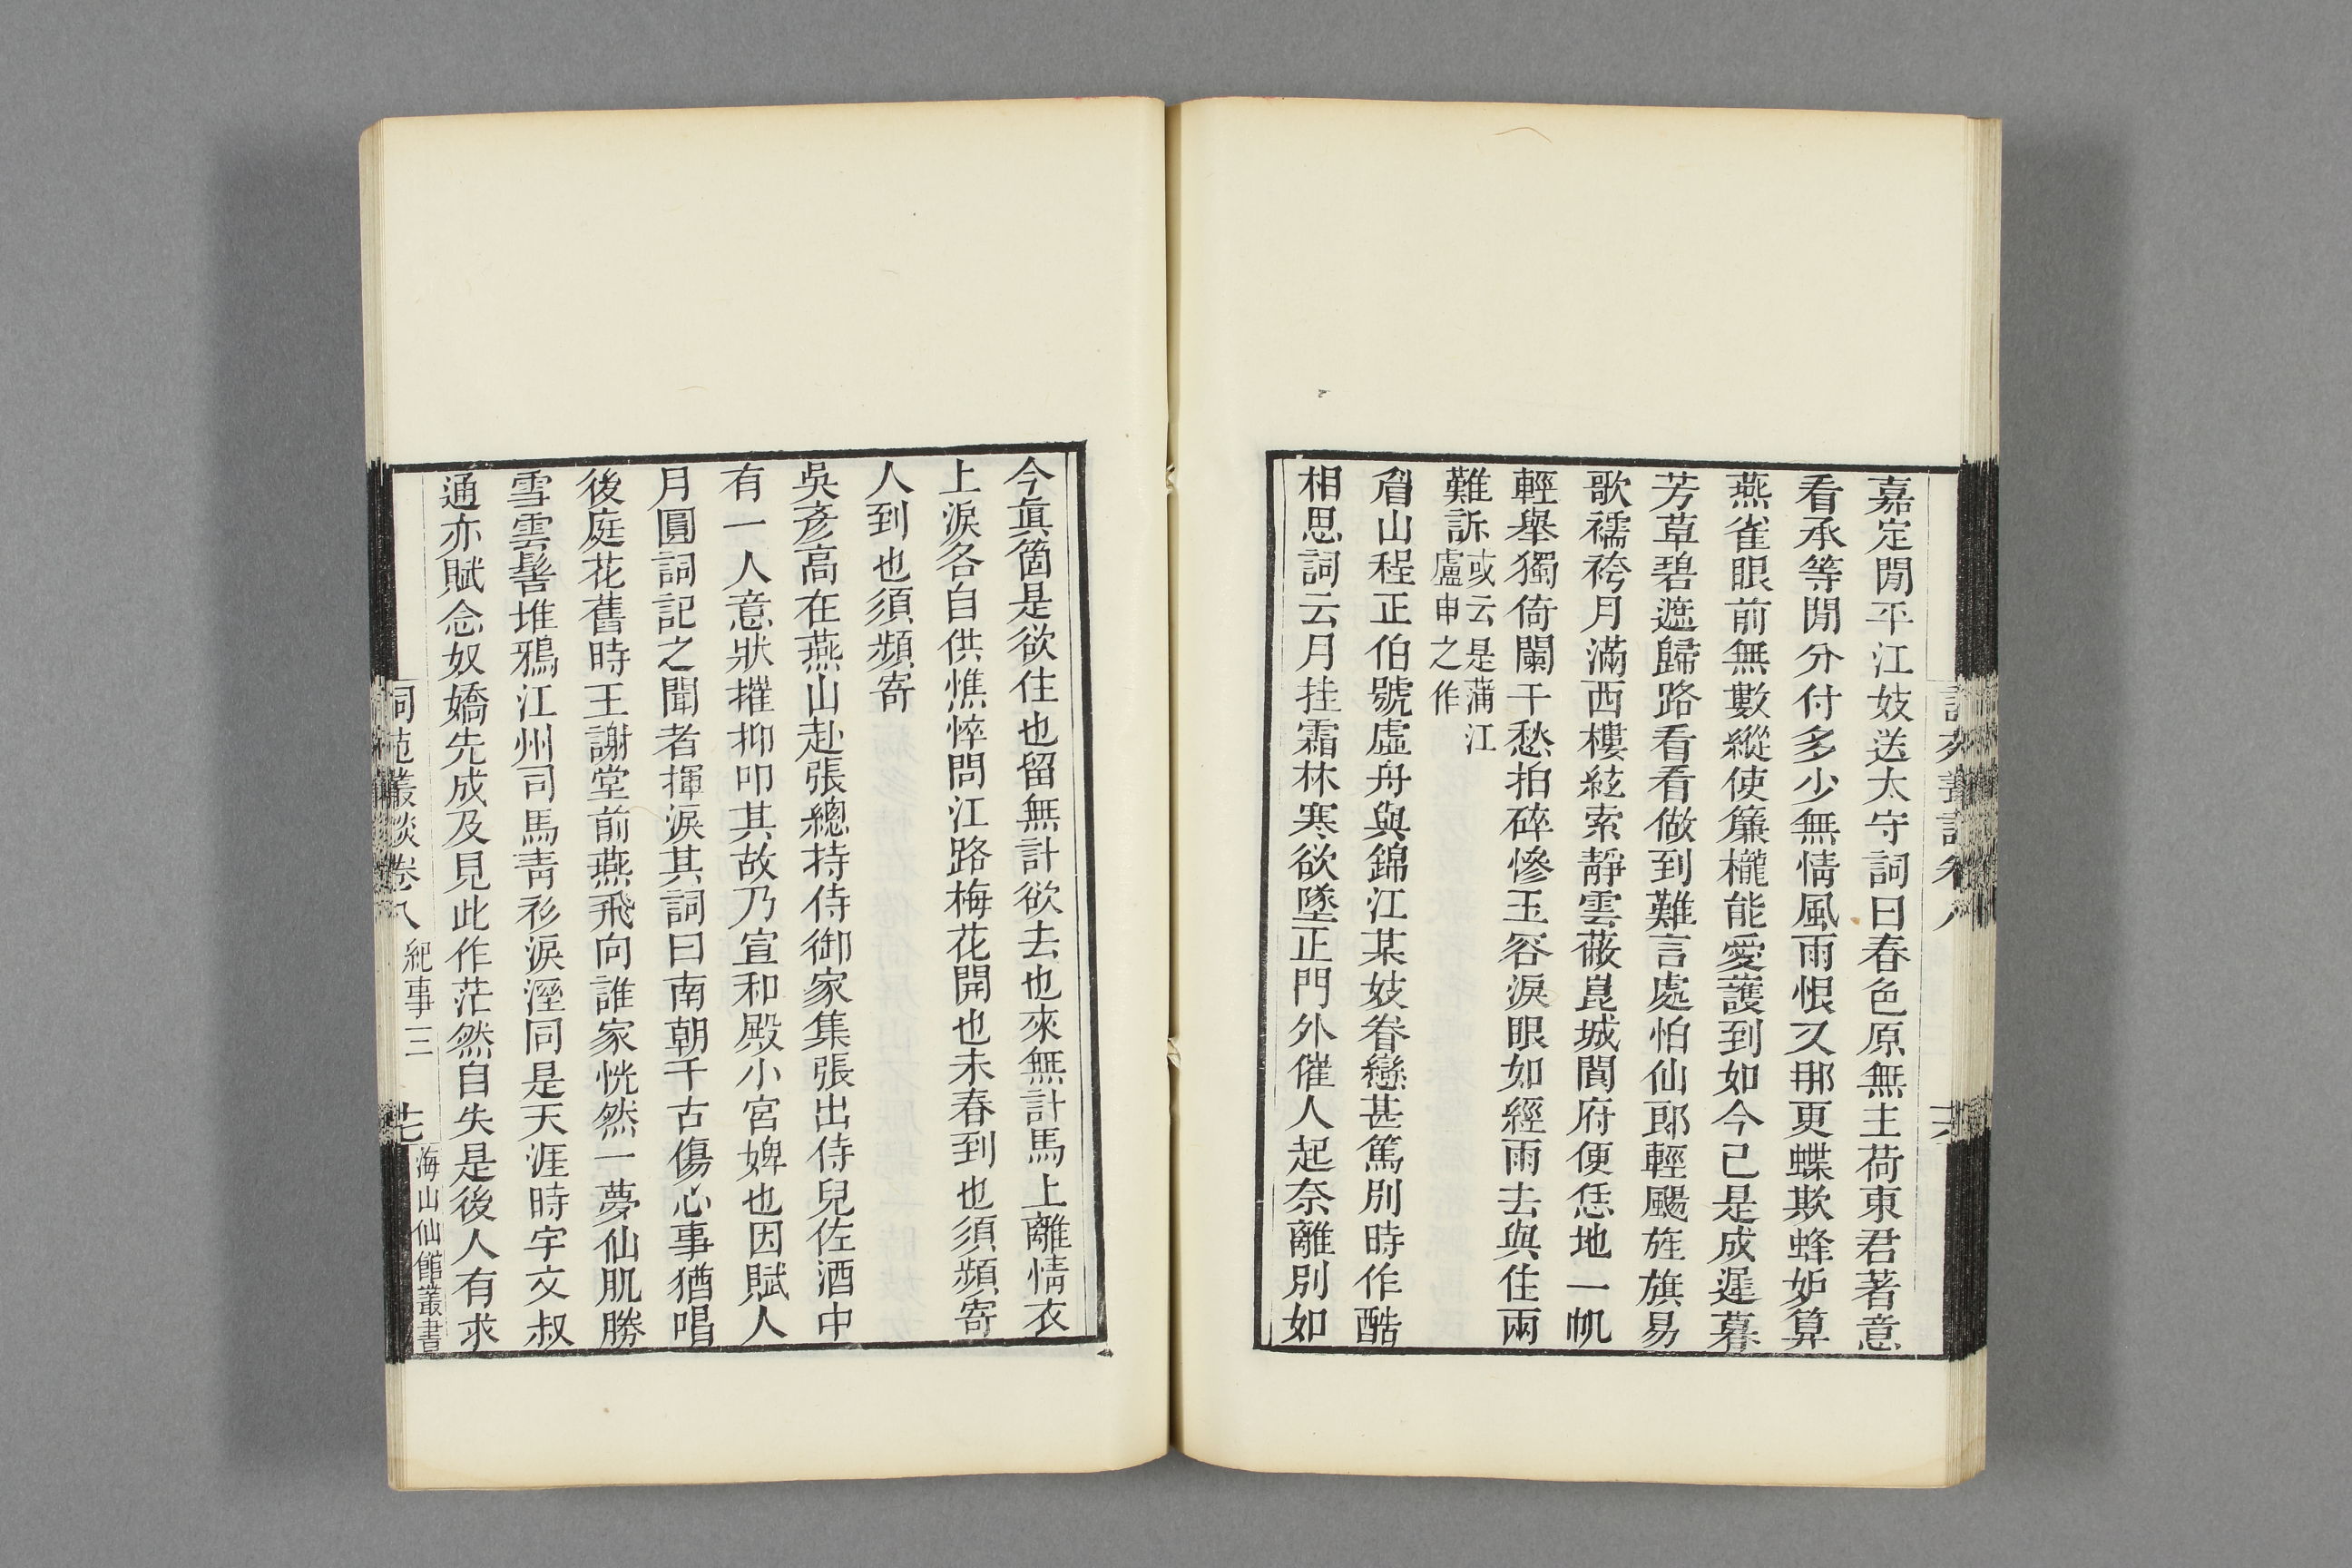 嘉定閒平江妓送太守詞曰春色原無主荷東君著意
看承等閒分付多少無情風雨恨又那更蝶欺蜂妒算
燕雀眼前無數縱使簾櫳能愛護到如今已是成遲暮
芳草碧遮歸路看看做到難言處怕仙郎輕颺旌旗易
歌襦袴月滿西樓絃索靜雲蔽崑城閬府便恁地一帆
輕舉獨倚闌干愁拍碎慘玉容淚眼如經雨去與住兩
難訴或云是蒲江
盧申之作
眉山程正伯號虛舟與錦江某妓眷戀甚篤別時作酷
相思詞云月挂霜林寒欲墜正門外催人起奈離別如
今眞箇是欲住也留無計欲去也來無計馬上離情衣
上淚各自供憔悴問江路梅花開也未春到也須頻寄
人到也須頻寄
吳彥高在燕山赴張總持侍御家集張出侍兒佐酒中
有一人意狀摧抑叩其故乃宣和殿小宮婢也因賦人
月圓詞記之聞者揮淚其詞曰南朝千古傷心事猶唱
後庭花舊時王謝堂前燕飛向誰家恍然一夢仙肌勝
雪雲髻堆鴉江州司馬靑衫淚溼同是天涯時宇文叔
通亦賦念奴嬌先成及見此作茫然自失是後人有求
詞苑叢談卷八 紀事三 十七 海山仙館叢書